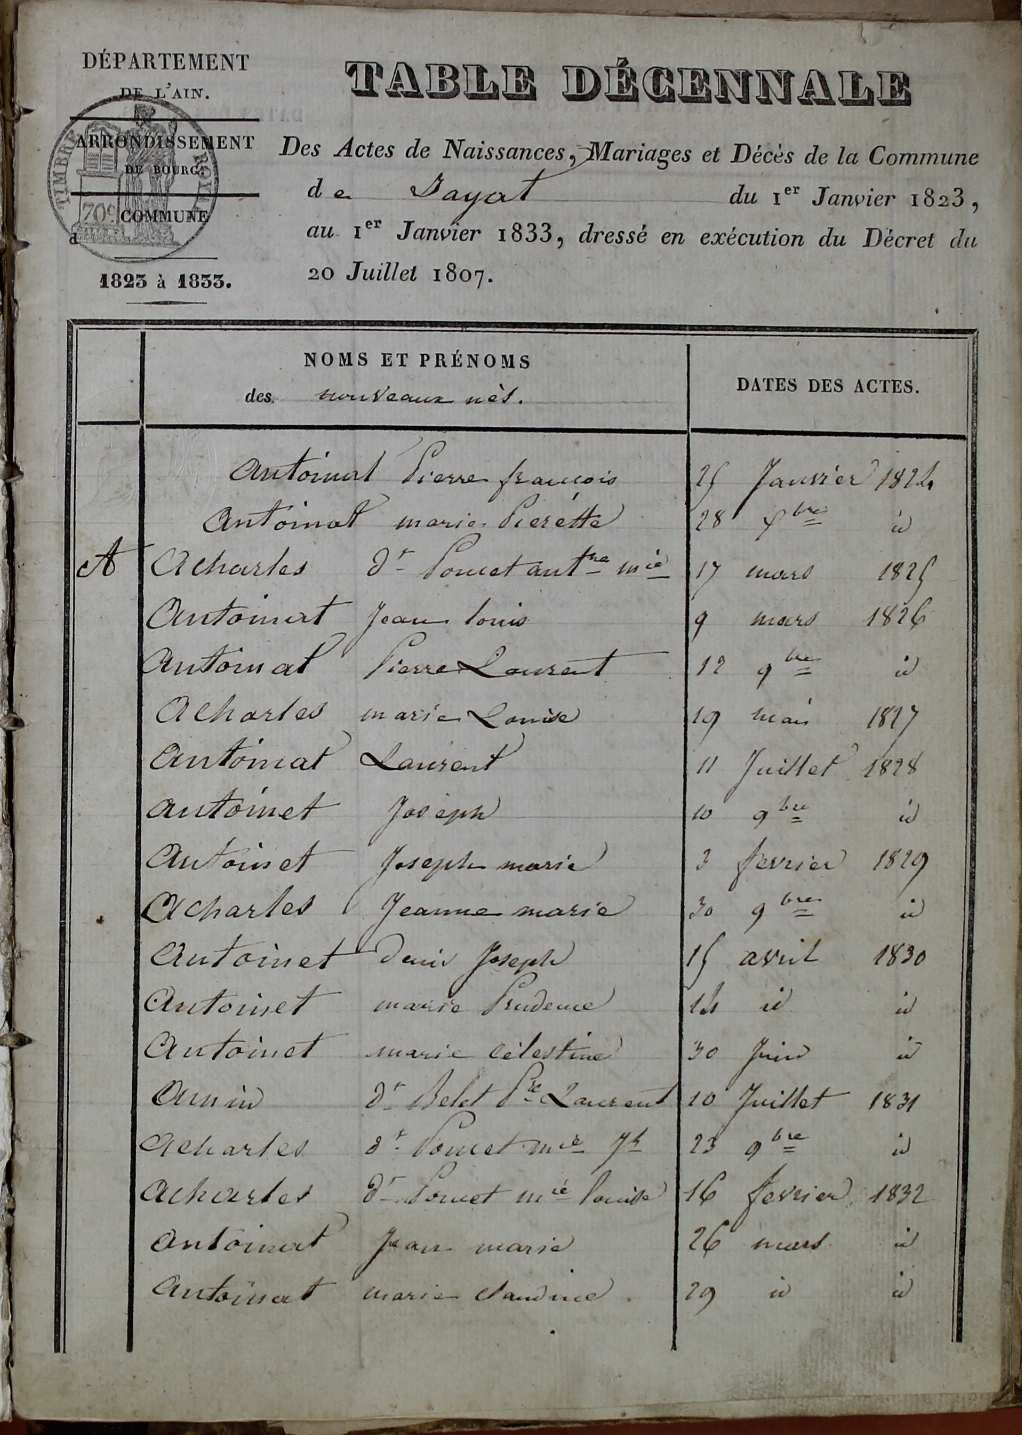 DÉPARTEMENT
DE L'AIN.
ARRONDISSEMENT
DE BOURG.
COMMUNE
d
1823 à 1833.
TIMBRE ROYAL
70c
TABLE DÉCENNALE
Des Actes de Naissances, Mariages et Décès de la Commune
de Jayat du 1er Janvier 1823,
au 1er Janvier 1833, dressé en exécution du Décret du
20 Juillet 1807.
NOMS ET PRÉNOMS
des nouveaux nés.
DATES DES ACTES.
Antoinat Pierre françois 25 Janvier 1824
Antoinat marie Pierette 28 bre id
A Acharles dt Poncet antne mie 17 mars 1825
Antoinat Jean louis 9 mars 1826
Antoinat Pierre Laurent 12 9bre id
Acharles marie Louise 19 mai 1827
Antoinat Laurent 11 Juillet 1828
antoinet Joseph 10 9bre id
Antoinet Joseph marie 3 fevrier 1829
Acharles Jeanne marie 30 9bre id
Antoinet Denis Joseph 15 avril 1830
Antoinet marie Prudence 14 id id
Antoinet marie célestine 30 Juin id
Amin dt Belet Pre Laurent 10 Juillet 1831
Acharles dt Poncet mie Jh 23 9bre id
Acharles dt Poncet mie louise 16 fevrier 1832
Antoinat Jean marie 26 mars id
Antoinat marie claudine 29 id id